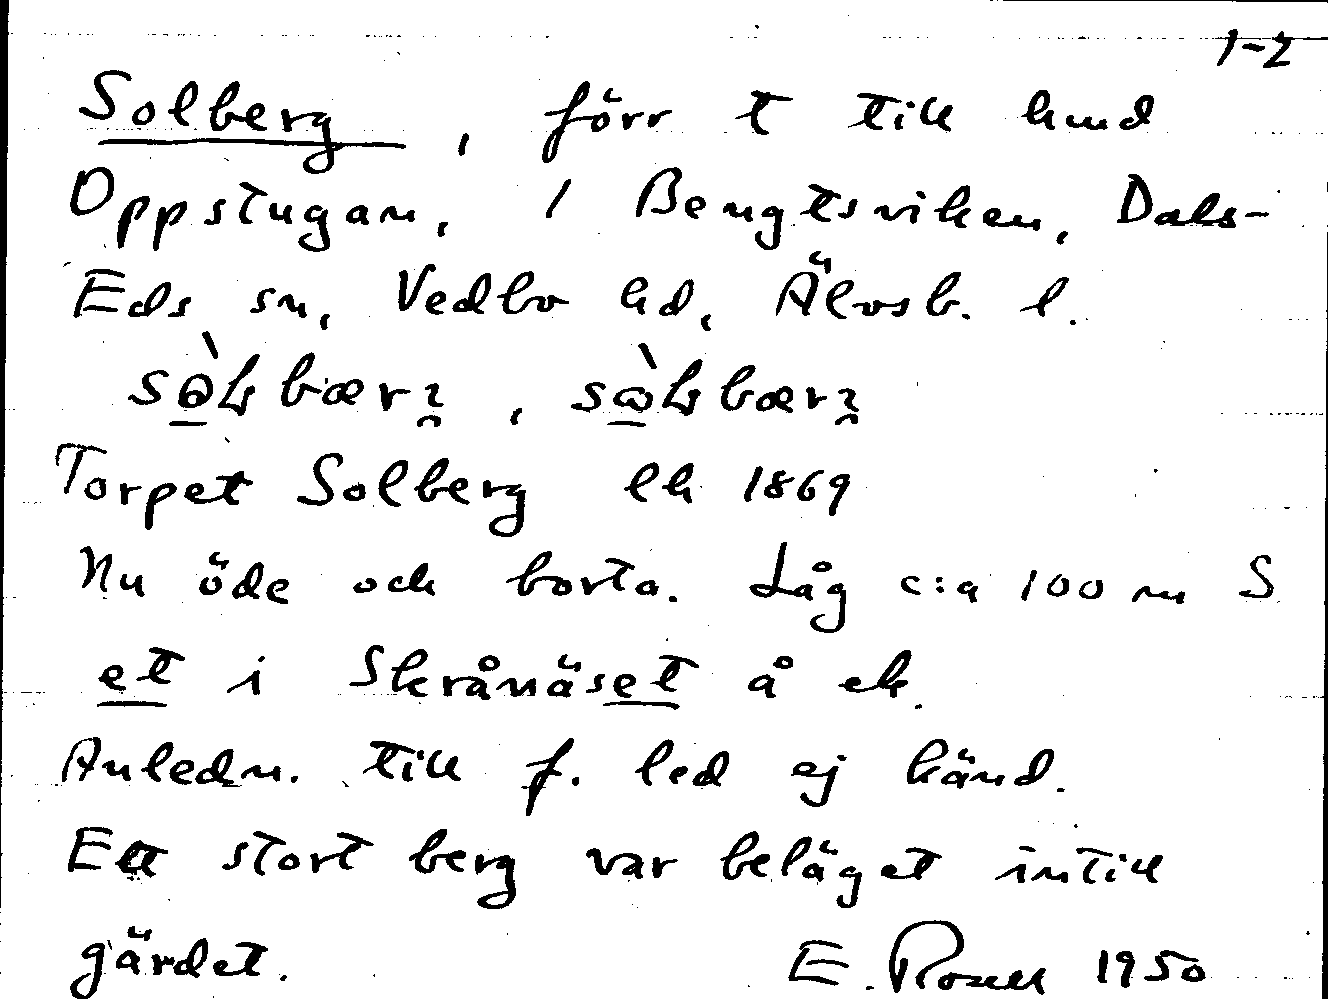 1-2
Solberg, förr t till hmd
Oppstugan, 1 Bengtsviken, Dals-
Eds sn, Vedbo hd, Älvsb. l.
Torpet Solberg lh 1869
Nu öde och borta. Låg c:a 100 m S
et i Skrånäset å ek.
Anledn. till f. led ej känd.
Ett stort berg var beläget intill
gärdet. E. Rosell 1950